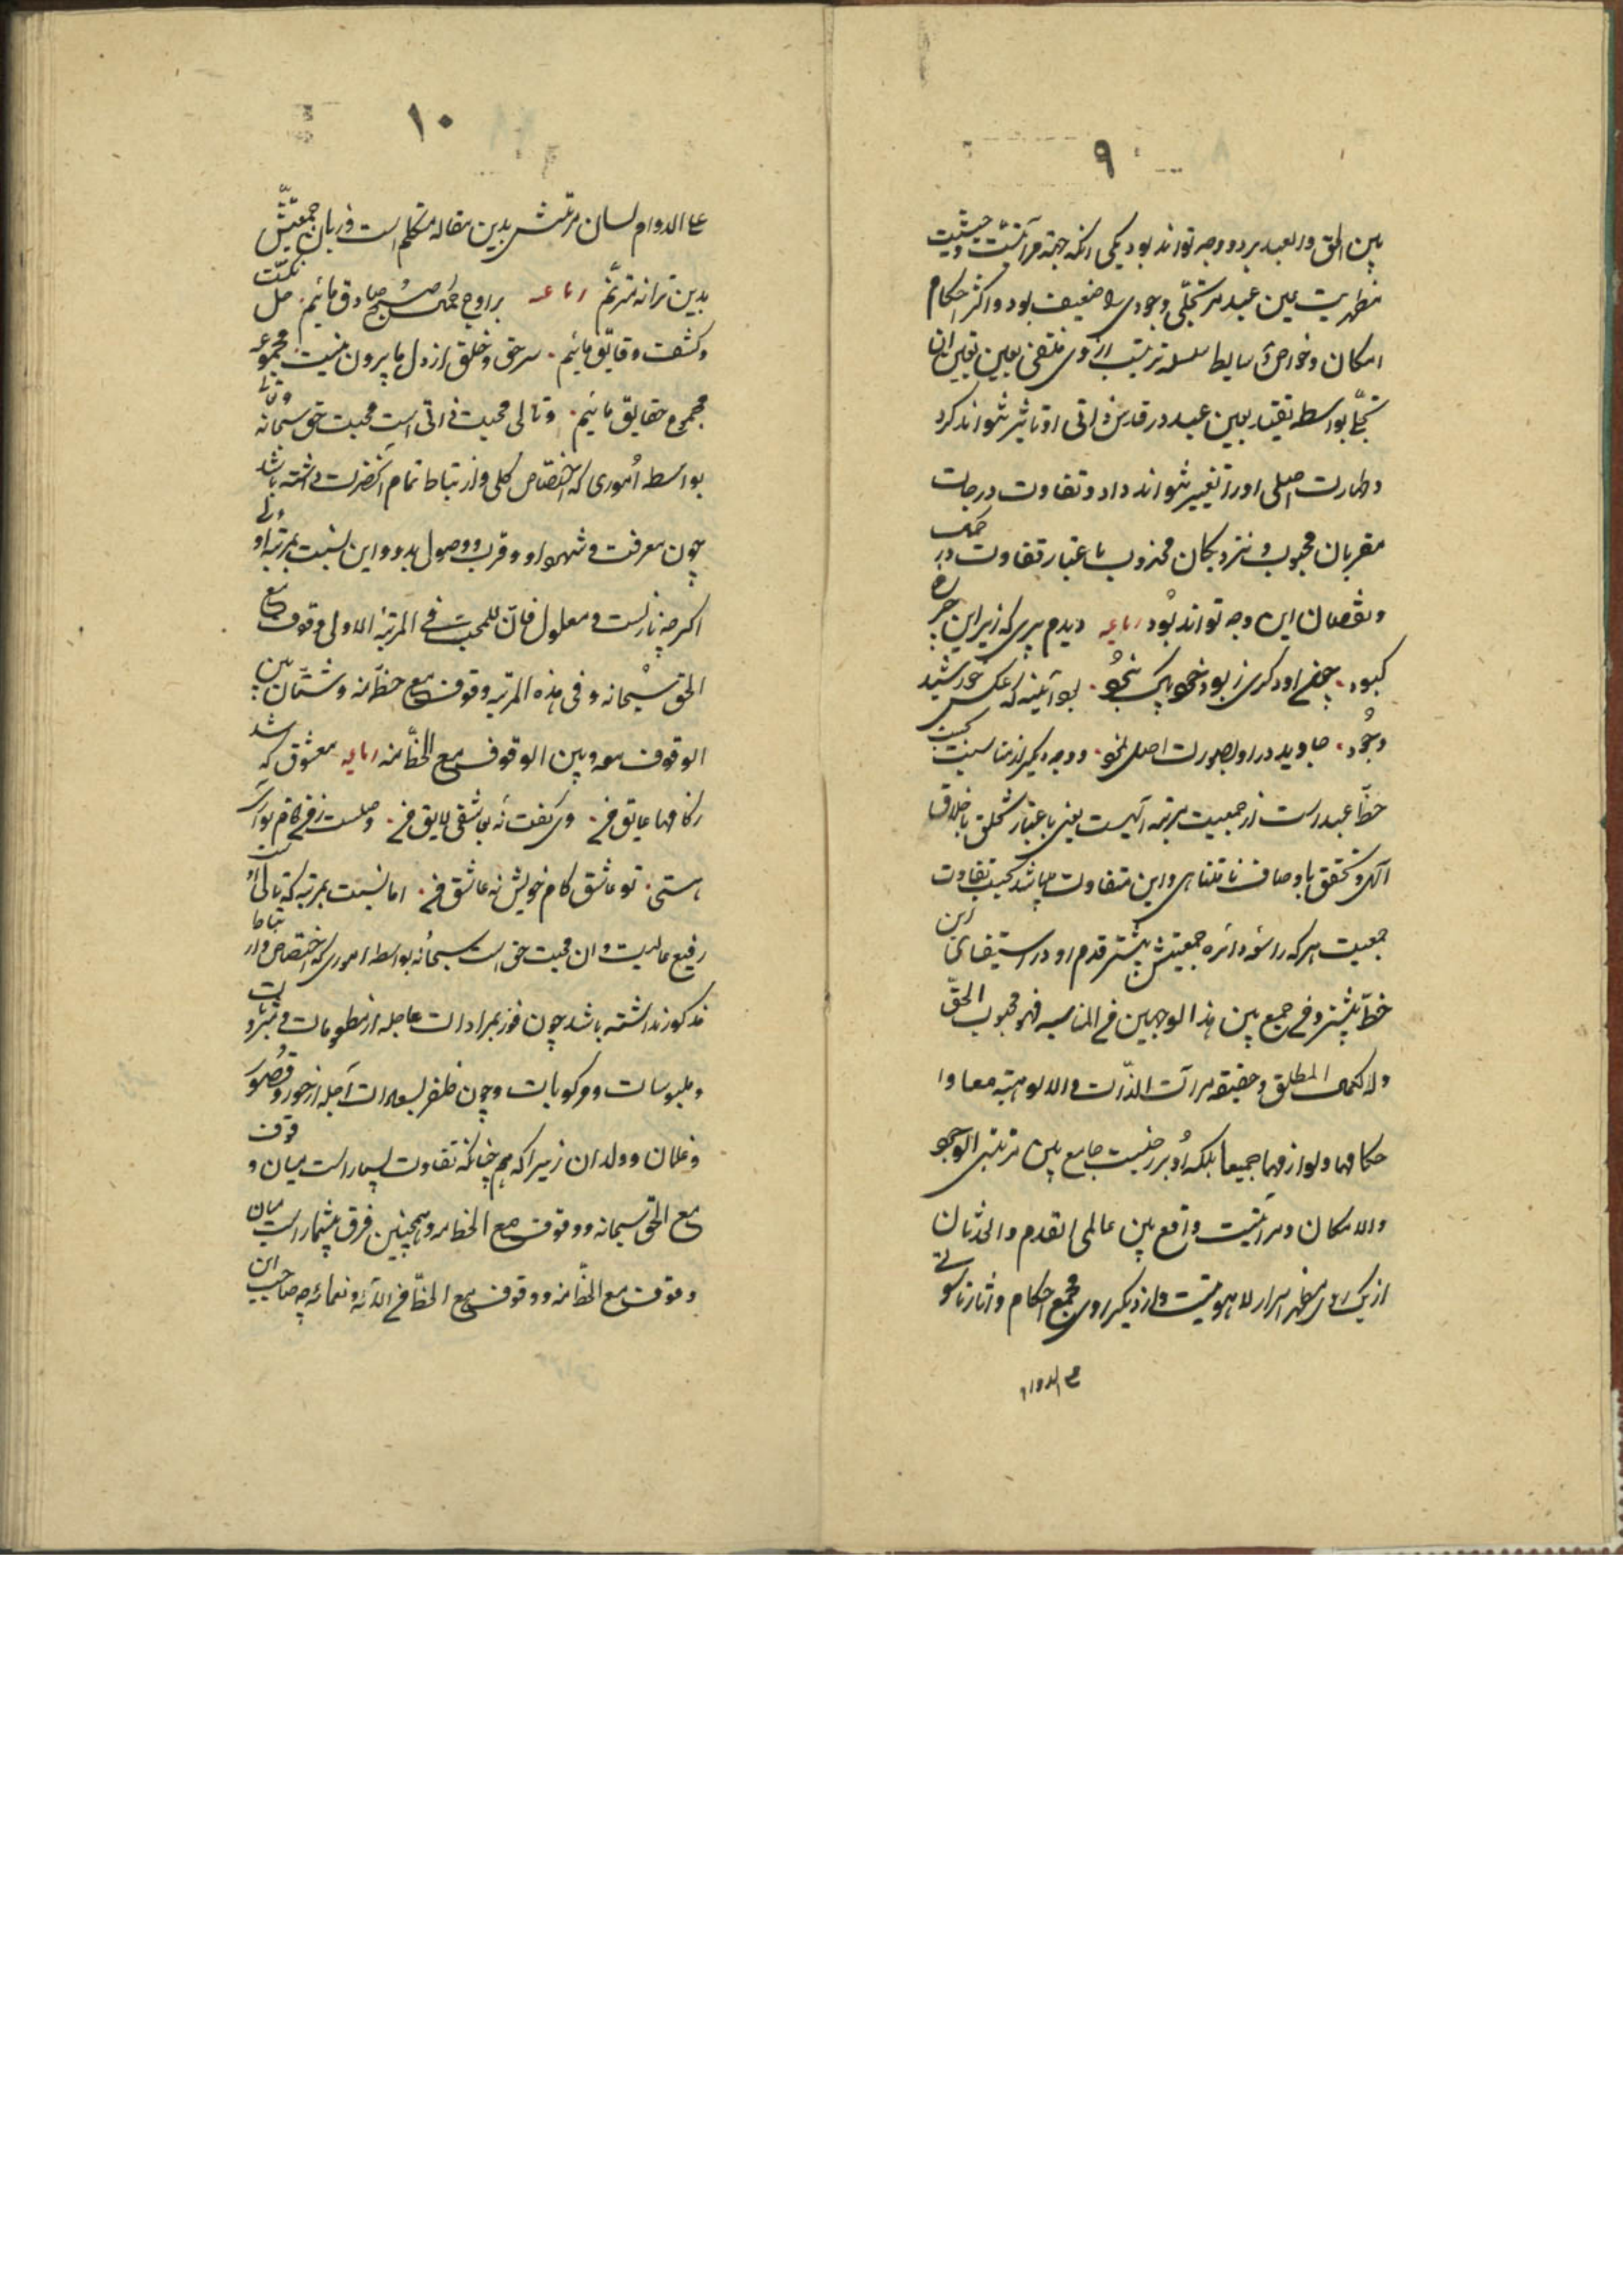 ٩
بین الحق و العبد بر دو وجه تواند بود یکی آنکه جهة مرآتیّت و حیثیت
مظهریت عین عبد مر تجلّی وجودی را ضعیف بود و اکثر احکام
امکان و خواص وسایط سلسله ترتیب از وی منتفی بعین تعین آن
تجلّی بواسطه تقید بعین عبد در قدس ذاتی او تاثیر نتواند کرد
و طهارت اصلی او را تغییر نتواند داد و تفاوت درجات
مقربان محبوب و نزدیکان مجذوب باعتبار تفاوت در کمال
و نقصان این وجه تواند بود رباعیه دیدم پیری که زیر این چرخ
کبود چون او دگری ز بود خود پاک نبود بود آئینه که عکس خورشید
وجود جاوید در او بصورت اصل نمود و وجه دیگر از مناسبت بحسب
حظّ عبد است از جمعیت مرتبه الٓهیت یعنی باعتبار تخلق باخلاق
الٓهی و تحقق باوصاف نامتناهی و این متفاوت میباشد بحسب تفاوت
جمعیت هر که را سعه دائره جمعیتش بیشتر قدم او در استیفای این
حظّ بیشتر و فی جمیع بین هذا الوجهین فی المناسبه فهو محبوب الحقّ
وله الکمال المطلق و حقیقه مرآت الذّات و الالوهیّه معا و ا
حکامها و لوازمها جمیعا بلکه او برزخیست جامع بین مرتبتی الوجوب
والامکان و مرآتیّت واقع بین عالمی القدم و الحدثان
از یک روی مظهر اسرار لاهوتیست و از دیگر روی مجمع احکام و اثار ناسوتی
علی الدوام
١٠
علی الدوام لسان مرتبتش بدین مقاله متکلم است و زبان جمعیّتش
بدین ترانه مترنّم رباعیه بر اوج کمال صبح صادق مائیم حل نکت
و کشف دقایق مائیم سر حق و خلق از دل ما بیرون نیست مجموعه
مجموع حقایق مائیم و تالی محبت ذاتی است محبت حق سبحانه و تعالی
بواسطه اموری که اختصاص کلی و ارتباط تمام آنحضرت داشته باشد
چون معرفت و شهود او و قرب و وصول بدو و این نسبت بمرتبه اولی
اگر چه نازلست و معلول فانّ للمحبّ فی المرتبة الاولی وقوف مع
الحق سبحانه و فی هذه المرتبه وقوف مع حظّ منه و شتّان بین
الوقوف معه و بین الوقوف مع الحظّ منه رباعیه معشوق که شد
رکامها عایق فی وی گفت نه بعاشقی لایق فی وصلست ز فی کام تو آری
هستی تو عاشق کام خویش نه عاشق فی اما نسبت بمرتبه که تالی اوست
رفیع عالیست و ان محبت حق است سبحانه بواسطه اموری که اختصاص و ارتباط
مذکور نداشته باشد چون فوز بمرادات عاجله از مطعومات و مشروبات
و ملبوسات و مرکوبات و چون ظفر بسعادات آجله از حور و قصور
و غلمان و ولدان زیرا که هم چنانکه تفاوت بسیار است میان وقوف
مع الحق سبحانه و وقوف مع الحظ منه و همچنین فرق بیشمار است میان
وقوف مع الحظّ منه و وقوف مع الحظّ فی الآئه و نعمائه چه صاحب این